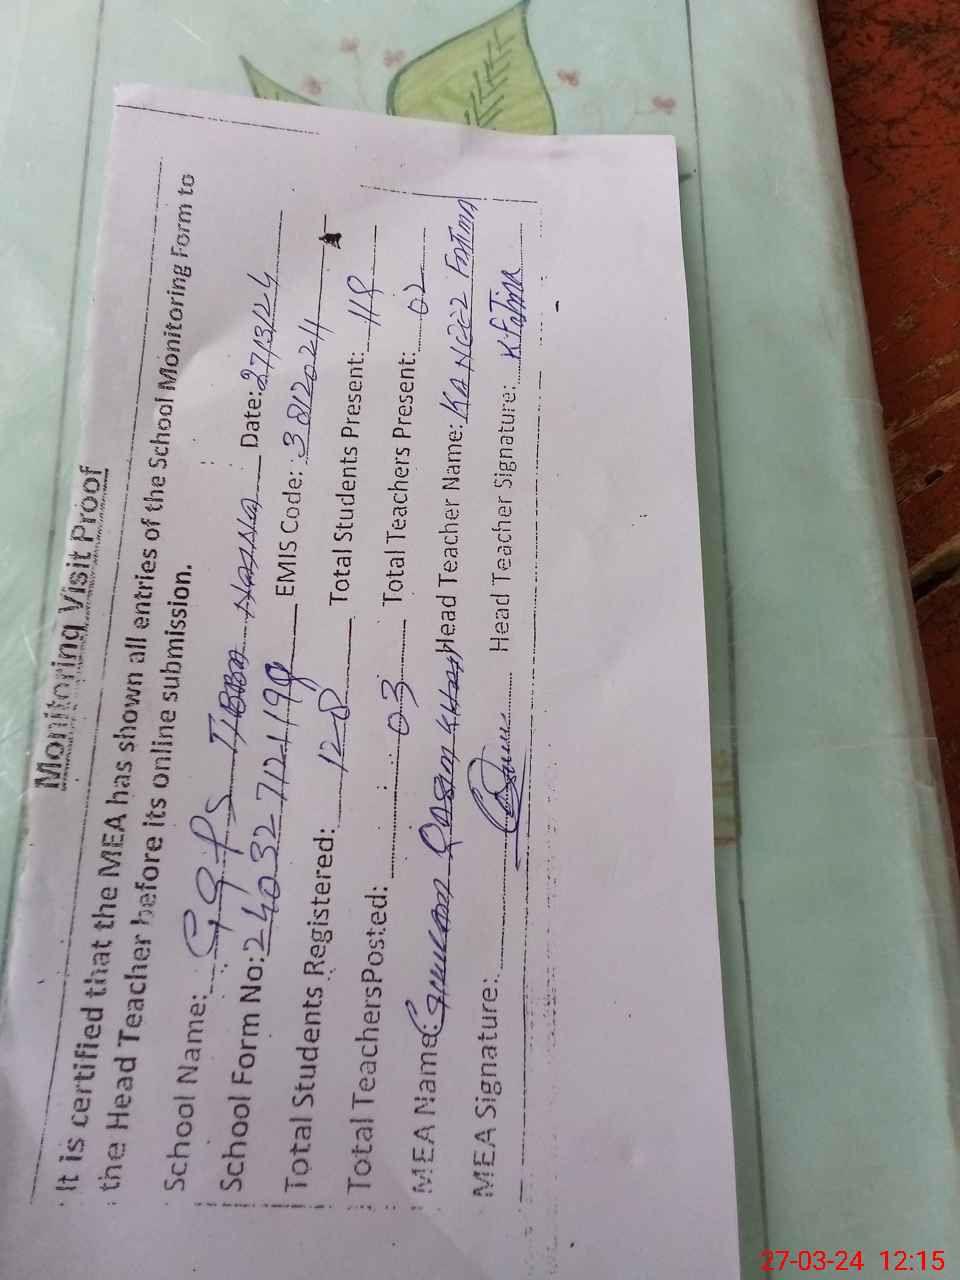 Monitoring Visit Proof
It is certified that the MEA has shown all entries of the School Monitoring Form to
the Head Teacher before its online submission.
School Name: GGPS TIBBA Date: 27/3/24
School Form No: 24032712119 EMIS Code: 31202
Total Students Registered: 128 Total Students Present: 118
Total Teachers Posted: 03 Total Teachers Present: 02
MEA Name: Ghulam Qasim Khan Head Teacher Name: KANEEZ Fatima
MEA Signature: Head Teacher Signature: K Fatima
27-03-24 12:15